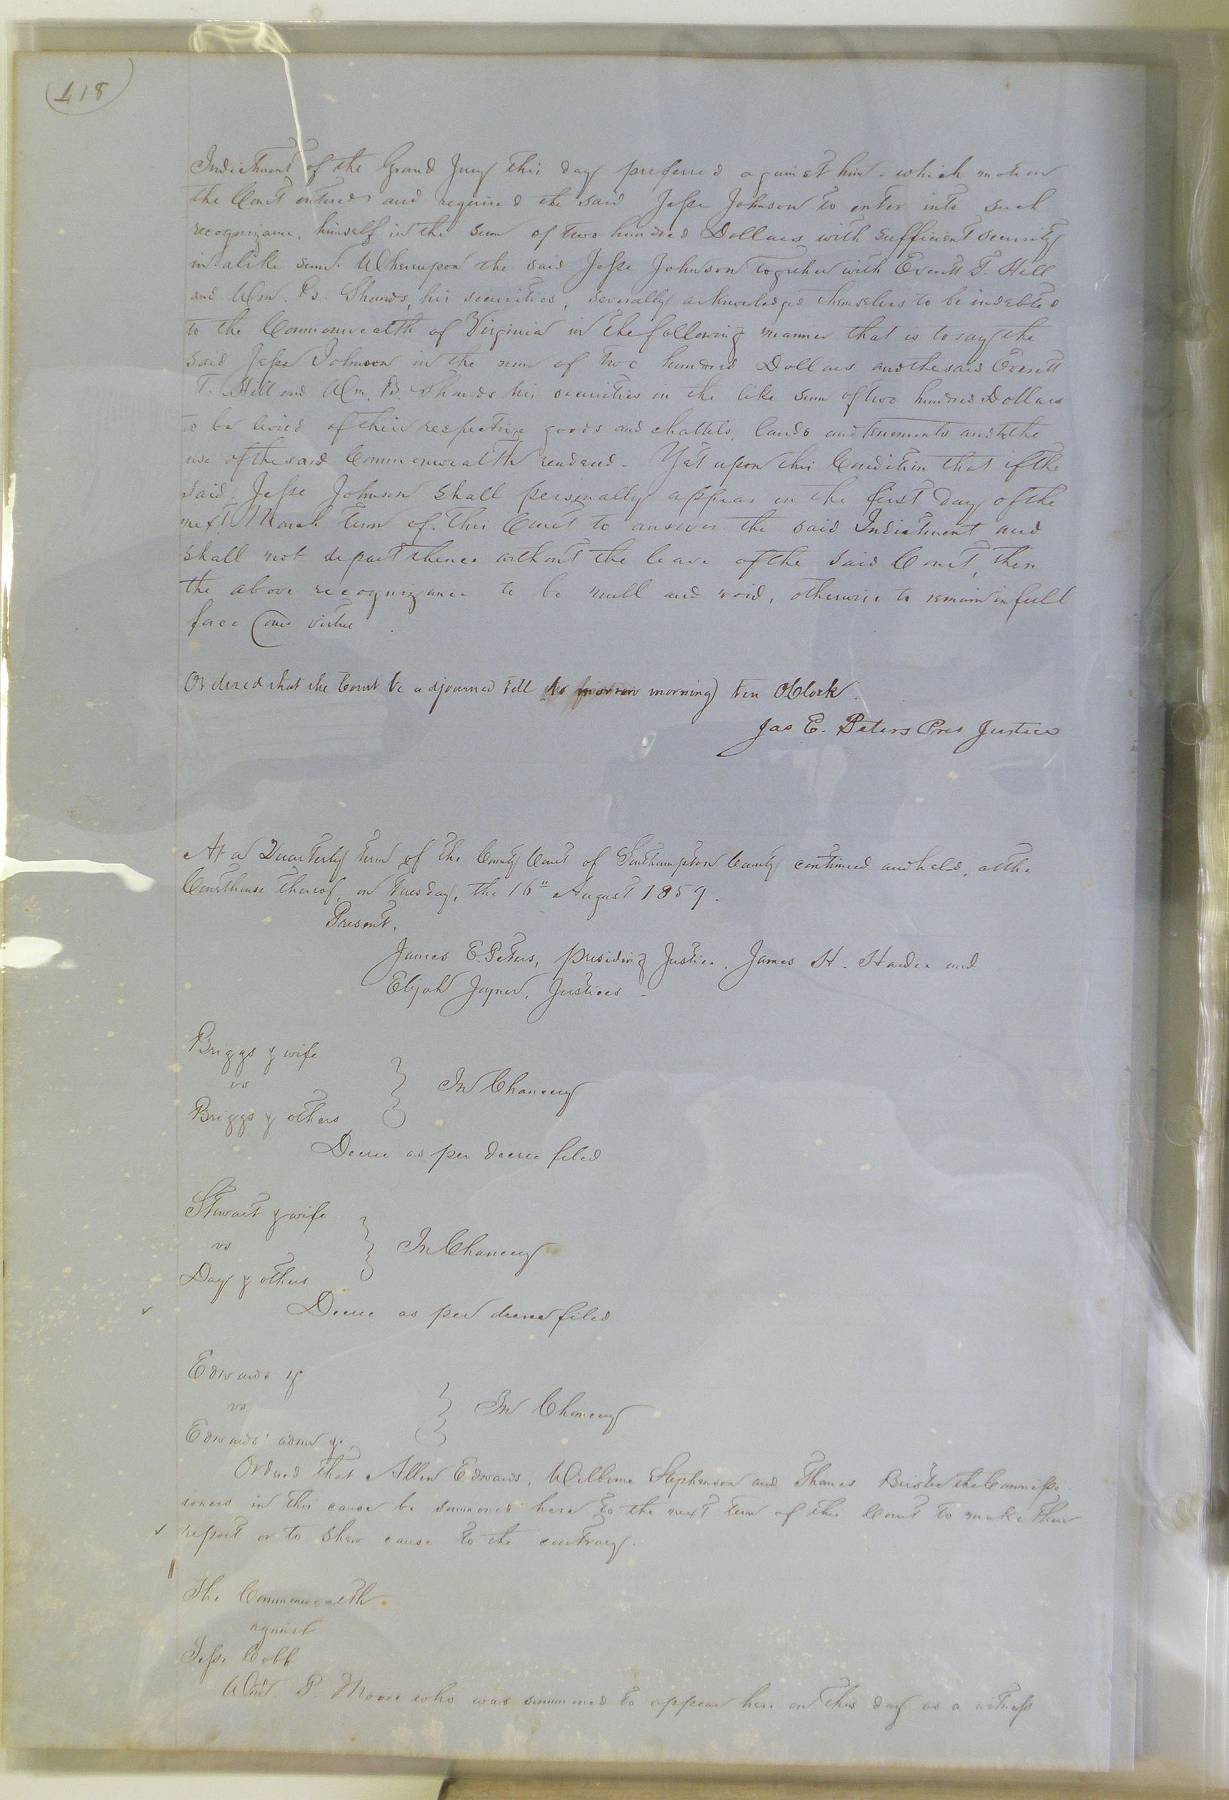 418
Indictment of the Grand Jury this day preferred against him - which motion
the Court entered and required the said Jesse Johnson to enter into such
recognizance, himself in the sum of two hundred Dollars with sufficient security
in a like sum. Whereupon the said Jesse Johnson together with Everett T. Hill
and Wm. B. Shands, his securities, severally acknowledged themselves to be indebted
to the Commonwealth of Virginia in the following manner that is to say the
said Jesse Johnson in the sum of two hundred Dollars and the said Everett
T. Hill and Wm. B. Shands his securities in the like sum of two hundred Dollars
to be levied of their respective goods and chattels, lands and tenements and to the
use of the said Commonwealth rendered - Yet upon this Condition that if the
said Jesse Johnson shall personally appear on the first Day of the
next March term of this Court to answer the said Indictment and
shall not depart thence without the leave of the said Court, then
the above recognizance to be null and void, otherwise to remain in full
force and virtue.
Ordered that the Court be adjourned till to morrow morning ten OClock.
Jas E. Peters Pres Justice
At a Quarterly term of the County Court of Southampton County continued and held, at the
Courthouse thereof, on Tuesday, the 16th August 1859.
Present,
James E. Peters, presiding Justice, James H. and
Elijah Joyner, Justices -
Briggs & wife
vs
Briggs & others
In Chancery
Decree as per decree filed
Stewart & wife
vs
Day & others
In Chancery
Decree as per decree filed
Edwards &
vs
Edwards' admr &.
In Chancery
Ordered that Allen Edwards, Stephenson and Thomas the Commiss-
ioners in this cause be summoned here to the next term of this Court to make their
report or to shew cause to the contrary.
The Commonwealth
against
Jesse Cobb
P. Moore who was summoned to appear here on this day as a witness